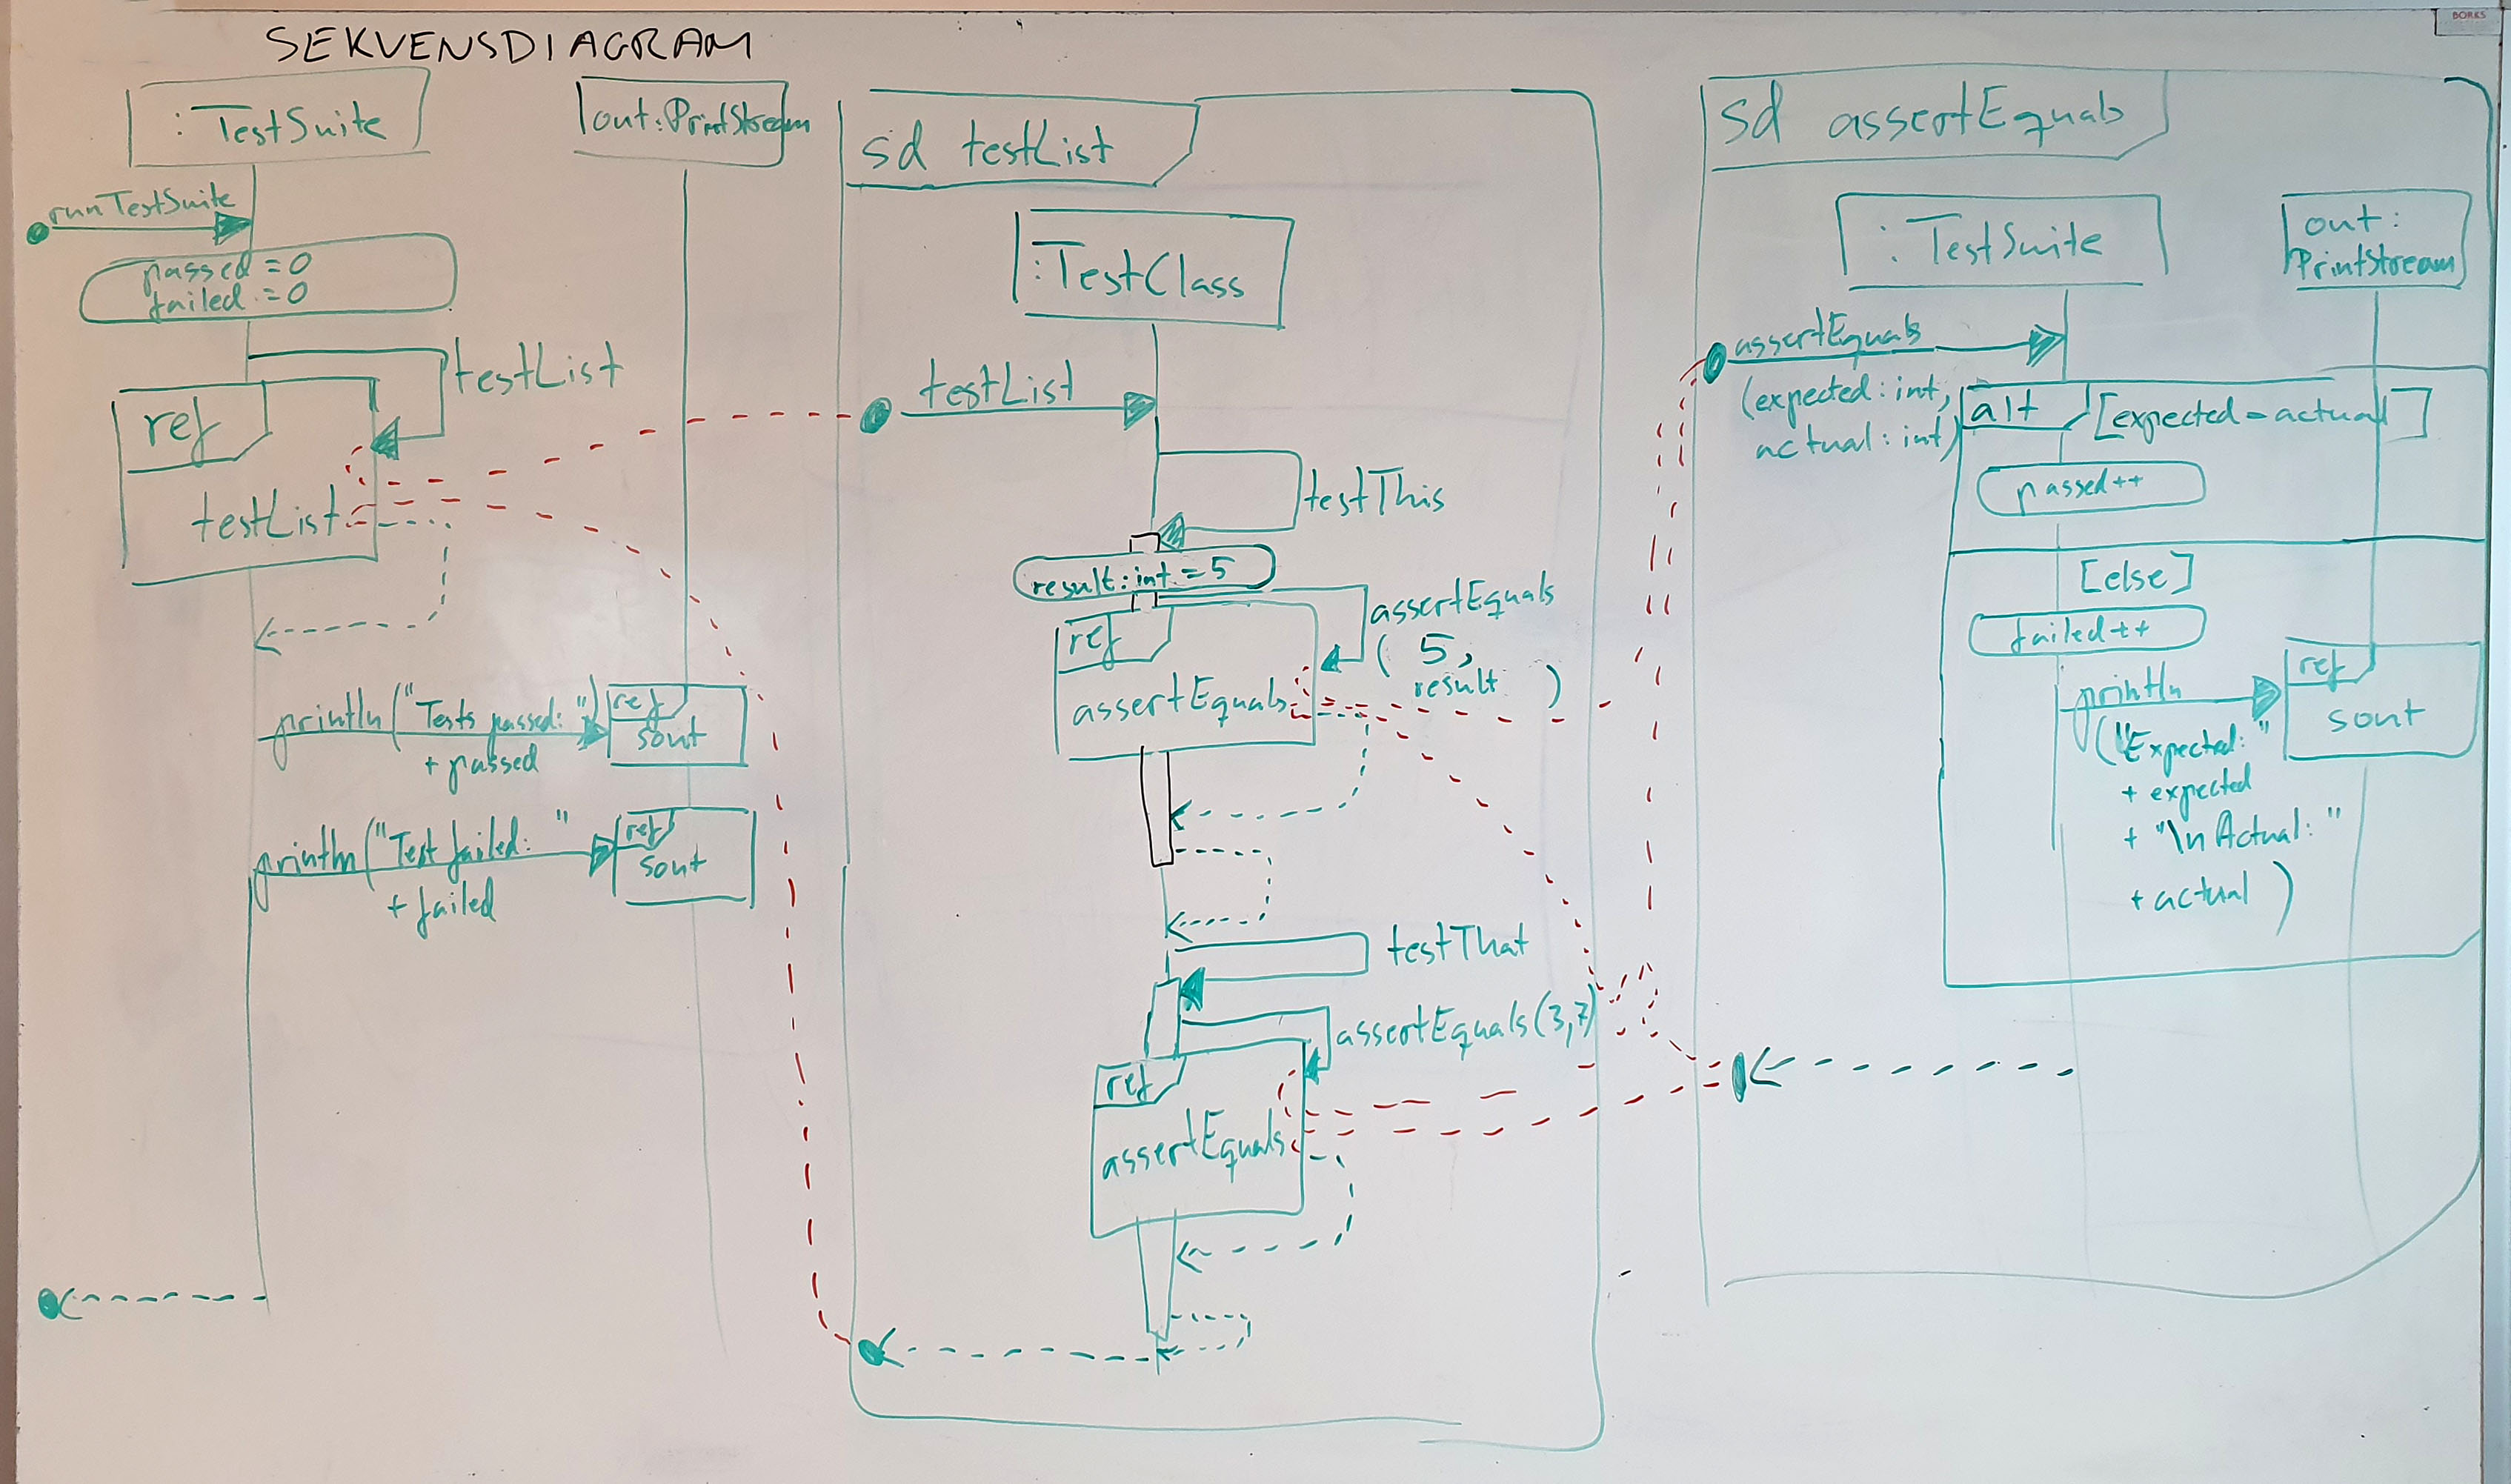 SEKVENSDIAGRAM
BORKS
:TestSuite
out:PrintStream
runTestSuite
passed = 0
failed = 0
testList
ref
testList
println("Tests passed: ")
+ passed
ref
sout
println("Test failed: "
+ failed
ref
sout
sd testList
:TestClass
testList
testThis
result:int = 5
assertEquals
( 5,
result )
ref
assertEquals
testThat
assertEquals(3,7)
ref
assertEquals
sd assertEquals
:TestSuite
out:
PrintStream
assertEquals
(expected:int,
actual:int)
alt [expected = actual]
passed++
[else]
failed++
println
("Expected: "
+ expected
+ "\n Actual: "
+ actual )
ref
sout